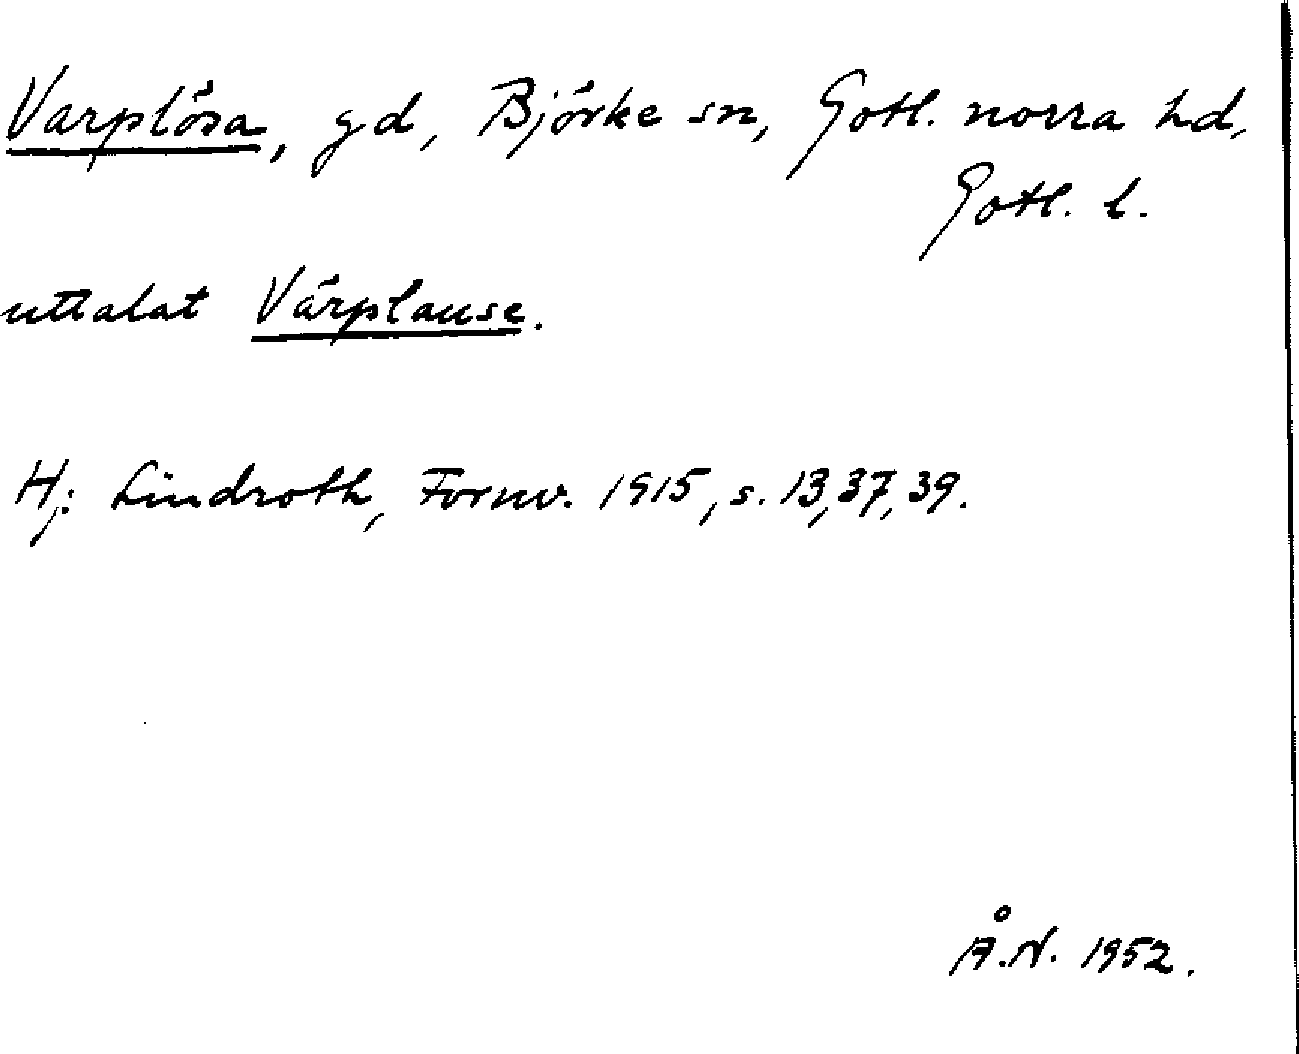 Varplösa, gd, Björke sn, Gotl. norra hd,
Gotl. l.
uttalat Värplause.
Hj: Lindroth, Fornv. 1915, s. 13, 37, 39.
Å.N. 1952.